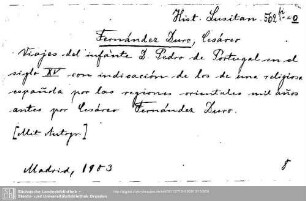 Hist. Lusitan. 562
Fernández Duro, Cesáreo
Viajes del infante D. Pedro de Portugal en el
siglo XV con indicación de los de una religiosa
española por las regiones orientales mil años
antes por Cesáreo Fernández Duro.
[Met Autogr.]
Madrid, 1903